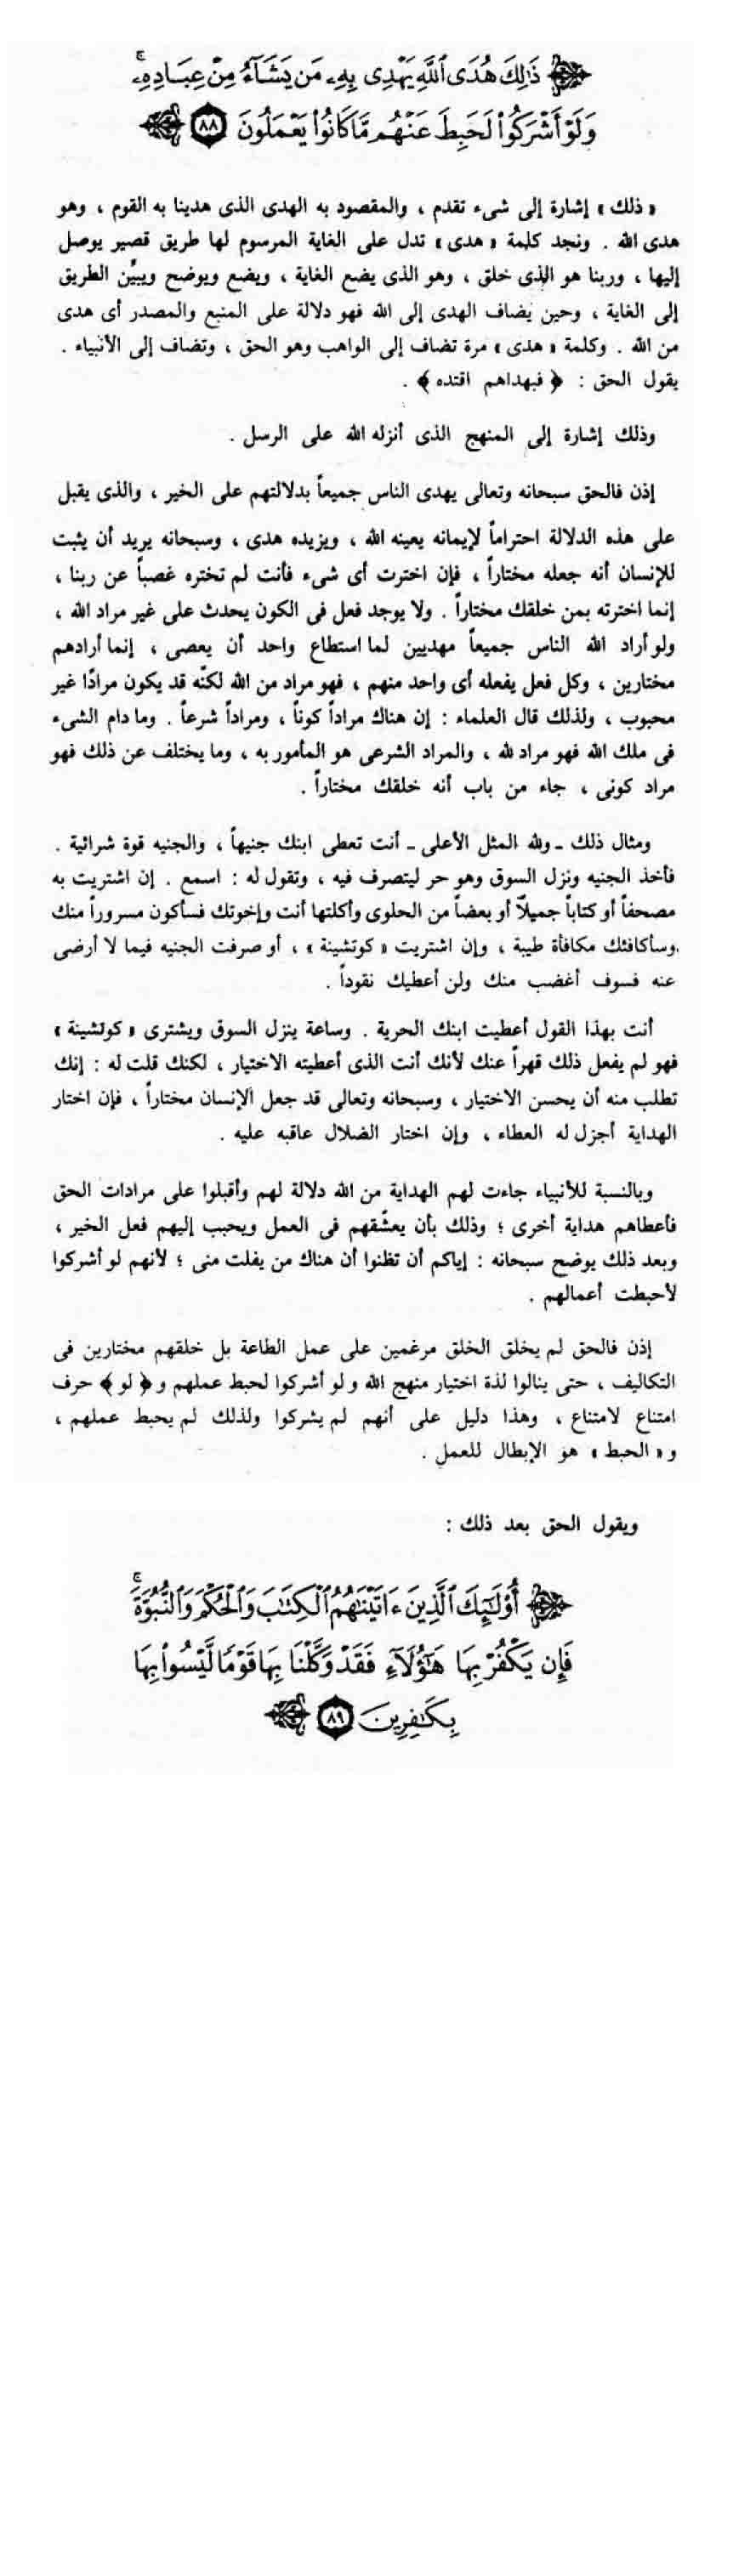 ذَٰلِكَ هُدَى ٱللَّهِ يَهْدِى بِهِۦ مَن يَشَآءُ مِنْ عِبَادِهِۦۚ
وَلَوْ أَشْرَكُوا۟ لَحَبِطَ عَنْهُم مَّا كَانُوا۟ يَعْمَلُونَ ٨٨
« ذلك » إشارة إلى شىء تقدم ، والمقصود به الهدى الذى هدينا به القوم ، وهو
هدى الله . ونجد كلمة « هدى » تدل على الغاية المرسوم لها طريق قصير يوصل
إليها ، وربنا هو الذى خلق ، وهو الذى يضع الغاية ، ويضع ويوضح ويبيِّن الطريق
إلى الغاية ، وحين يضاف الهدى إلى الله فهو دلالة على المنبع والمصدر أى هدى
من الله . وكلمة « هدى » مرة تضاف إلى الواهب وهو الحق ، وتضاف إلى الأنبياء .
يقول الحق : ﴿ فبهداهم اقتده ﴾ .
وذلك إشارة إلى المنهج الذى أنزله الله على الرسل .
إذن فالحق سبحانه وتعالى يهدى الناس جميعاً بدلالتهم على الخير ، والذى يقبل
على هذه الدلالة احتراماً لإيمانه يعينه الله ، ويزيده هدى ، وسبحانه يريد أن يثبت
للإنسان أنه جعله مختاراً ، فإن اخترت أى شىء فأنت لم تختره غصباً عن ربنا ،
إنما اخترته بمن خلقك مختاراً . ولا يوجد فعل فى الكون يحدث على غير مراد الله ،
ولو أراد الله الناس جميعاً مهديين لما استطاع واحد أن يعصى ، إنما أرادهم
مختارين ، وكل فعل يفعله أى واحد منهم ، فهو مراد من الله لكنّه قد يكون مرادًا غير
محبوب ، ولذلك قال العلماء : إن هناك مراداً كوناً ، ومراداً شرعاً . وما دام الشىء
فى ملك الله فهو مراد لله ، والمراد الشرعى هو المأمور به ، وما يختلف عن ذلك فهو
مراد كونى ، جاء من باب أنه خلقك مختاراً .
ومثال ذلك - ولله المثل الأعلى - أنت تعطى ابنك جنيهاً ، والجنيه قوة شرائية .
فأخذ الجنيه ونزل السوق وهو حر ليتصرف فيه ، وتقول له : اسمع . إن اشتريت به
مصحفاً أو كتاباً جميلاً أو بعضاً من الحلوى وأكلتها أنت وإخوتك فسأكون مسروراً منك
وسأكافئك مكافأة طيبة ، وإن اشتريت « كوتشينة » ، أو صرفت الجنيه فيما لا أرضى
عنه فسوف أغضب منك ولن أعطيك نقوداً .
أنت بهذا القول أعطيت ابنك الحرية . وساعة ينزل السوق ويشترى « كوتشينة »
فهو لم يفعل ذلك قهراً عنك لأنك أنت الذى أعطيته الاختيار ، لكنك قلت له : إنك
تطلب منه أن يحسن الاختيار ، وسبحانه وتعالى قد جعل الإنسان مختاراً ، فإن اختار
الهداية أجزل له العطاء ، وإن اختار الضلال عاقبه عليه .
وبالنسبة للأنبياء جاءت لهم الهداية من الله دلالة لهم وأقبلوا على مرادات الحق
فأعطاهم هداية أخرى ؛ وذلك بأن يعشّقهم فى العمل ويحبب إليهم فعل الخير ،
وبعد ذلك يوضح سبحانه : إياكم أن تظنوا أن هناك من يفلت منى ؛ لأنهم لو أشركوا
لأحبطت أعمالهم .
إذن فالحق لم يخلق الخلق مرغمين على عمل الطاعة بل خلقهم مختارين فى
التكاليف ، حتى ينالوا لذة اختيار منهج الله ولو أشركوا لحبط عملهم و ﴿ لو ﴾ حرف
امتناع لامتناع ، وهذا دليل على أنهم لم يشركوا ولذلك لم يحبط عملهم ،
و « الحبط » هو الإبطال للعمل .
ويقول الحق بعد ذلك :
أُو۟لَٰٓئِكَ ٱلَّذِينَ ءَاتَيْنَٰهُمُ ٱلْكِتَٰبَ وَٱلْحُكْمَ وَٱلنُّبُوَّةَۚ
فَإِن يَكْفُرْ بِهَا هَٰٓؤُلَآءِ فَقَدْ وَكَّلْنَا بِهَا قَوْمًا لَّيْسُوا۟ بِهَا
بِكَٰفِرِينَ ٨٩